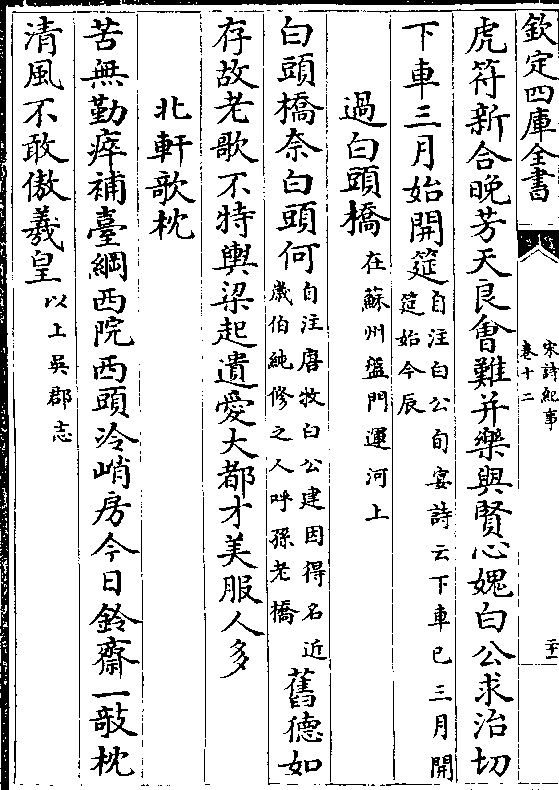 欽定四庫全書
宋詩紀事
卷十二
二十一
虎符新合晩芳天良㑹難并樂與賢心媿白公求治切
下車三月始開筵自注白公旬宴詩云下車已三月開
筵始今辰
過白頭橋在蘇州盤門運河上
白頭橋奈白頭何自注唐牧白公建因得名近
嵗伯純修之人呼孫老橋舊德如
存故老歌不特輿梁起遺愛大都才美服人多
北軒歌枕
苦無勤瘁補臺綱西院西頭冷峭房今日鈴齋一敧枕
清風不敢傲羲皇以上吳郡志